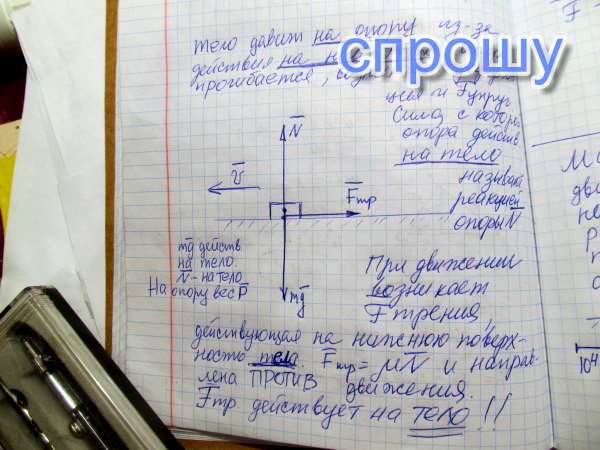 Тело давит на опору из-за
действия на н
прогибается,
спрошу
и Fупруг
Сила, с которой
опора действ
на тело
называ
реакцией
опоры N
N
v
Fтр
mg действ
на тело.
N - на тело
На опору вес P
mg
При движении
возникает
F трения,
действующая на нижнюю поверх-
ность тела Fтр = μN и направ-
лена ПРОТИВ движения.
Fтр действует на тело!!
104